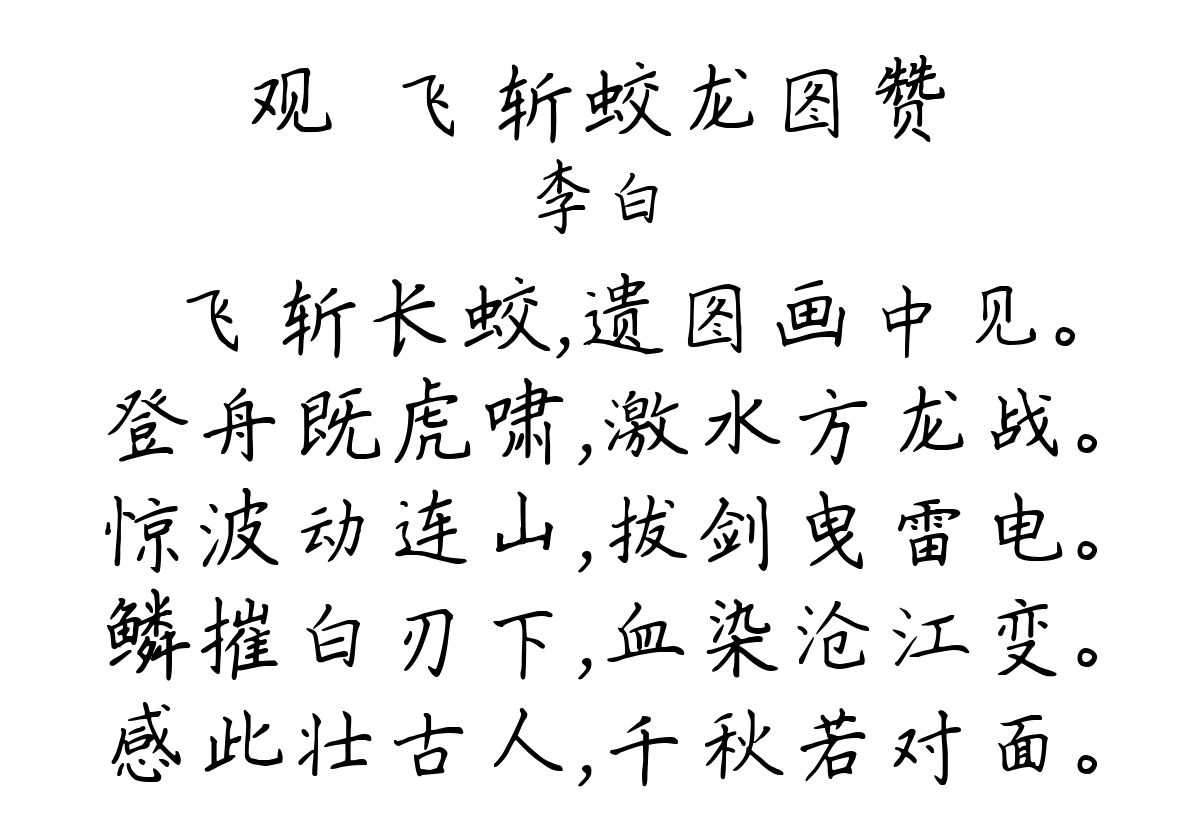 观 飞斩蛟龙图赞
李白
飞斩长蛟,遗图画中见。
登舟既虎啸,激水方龙战。
惊波动连山,拔剑曳雷电。
鳞摧白刃下,血染沧江变。
感此壮古人,千秋若对面。